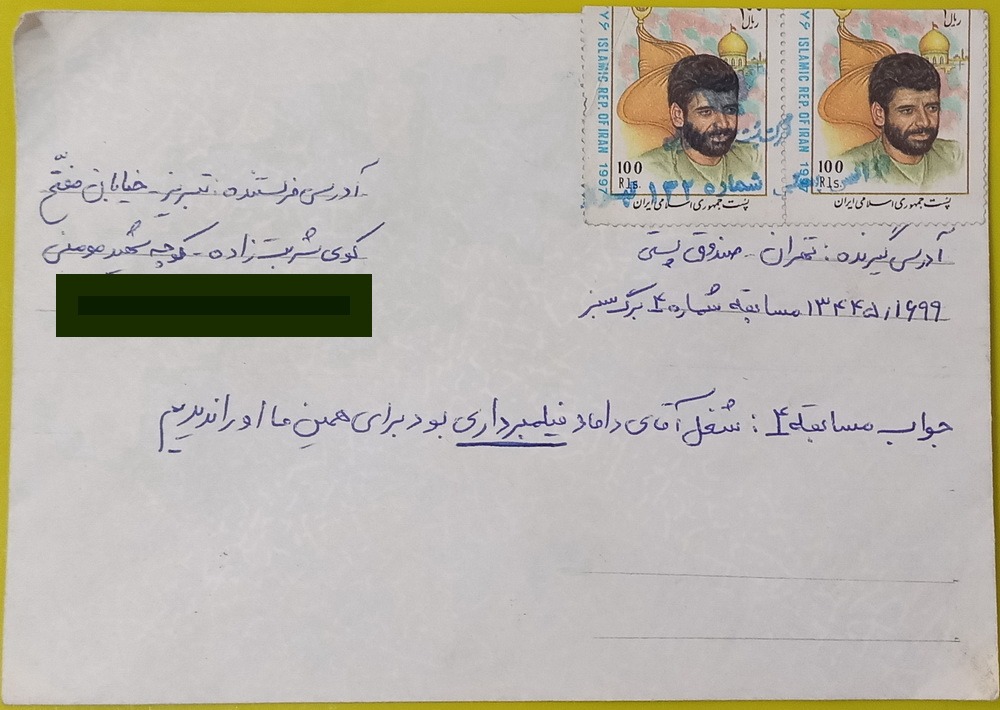 ۷۶ ISLAMIC REP. OF IRAN 1997
۱۰۰
ریال
100
Rls.
پست جمهوری اسلامی ایران
۷۶ ISLAMIC REP. OF IRAN 199
۱۰۰
ریال
100
Rls.
پست جمهوری اسلامی ایران
شماره ۱۳۲
آدرس فرستنده : تبریز - خیابان مفتّح
کوی شربت زاده - کوچه شهید مومنی
آدرس گیرنده : تهران - صندوق پستی
۱۳۴۴۵/۱۶۹۹ مسابقه شماره ۴ برگ سبز
جواب مسابقه ۴ : شغل آقای داماد فیلمبرداری بود برای همین ما او را ندیدیم